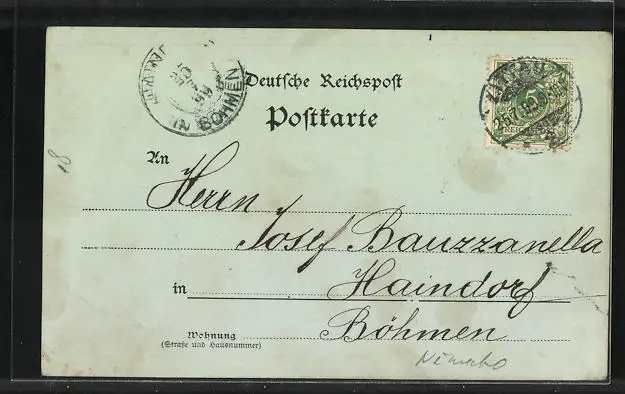 IN BÖHMEN
Deutsche Reichspost
Postkarte
ZITTAU
25.7.99.
An
Herrn
Josef Bauzzanella
in Haindorf
Böhmen
Wohnung
(Straße und Hausnummer)
18